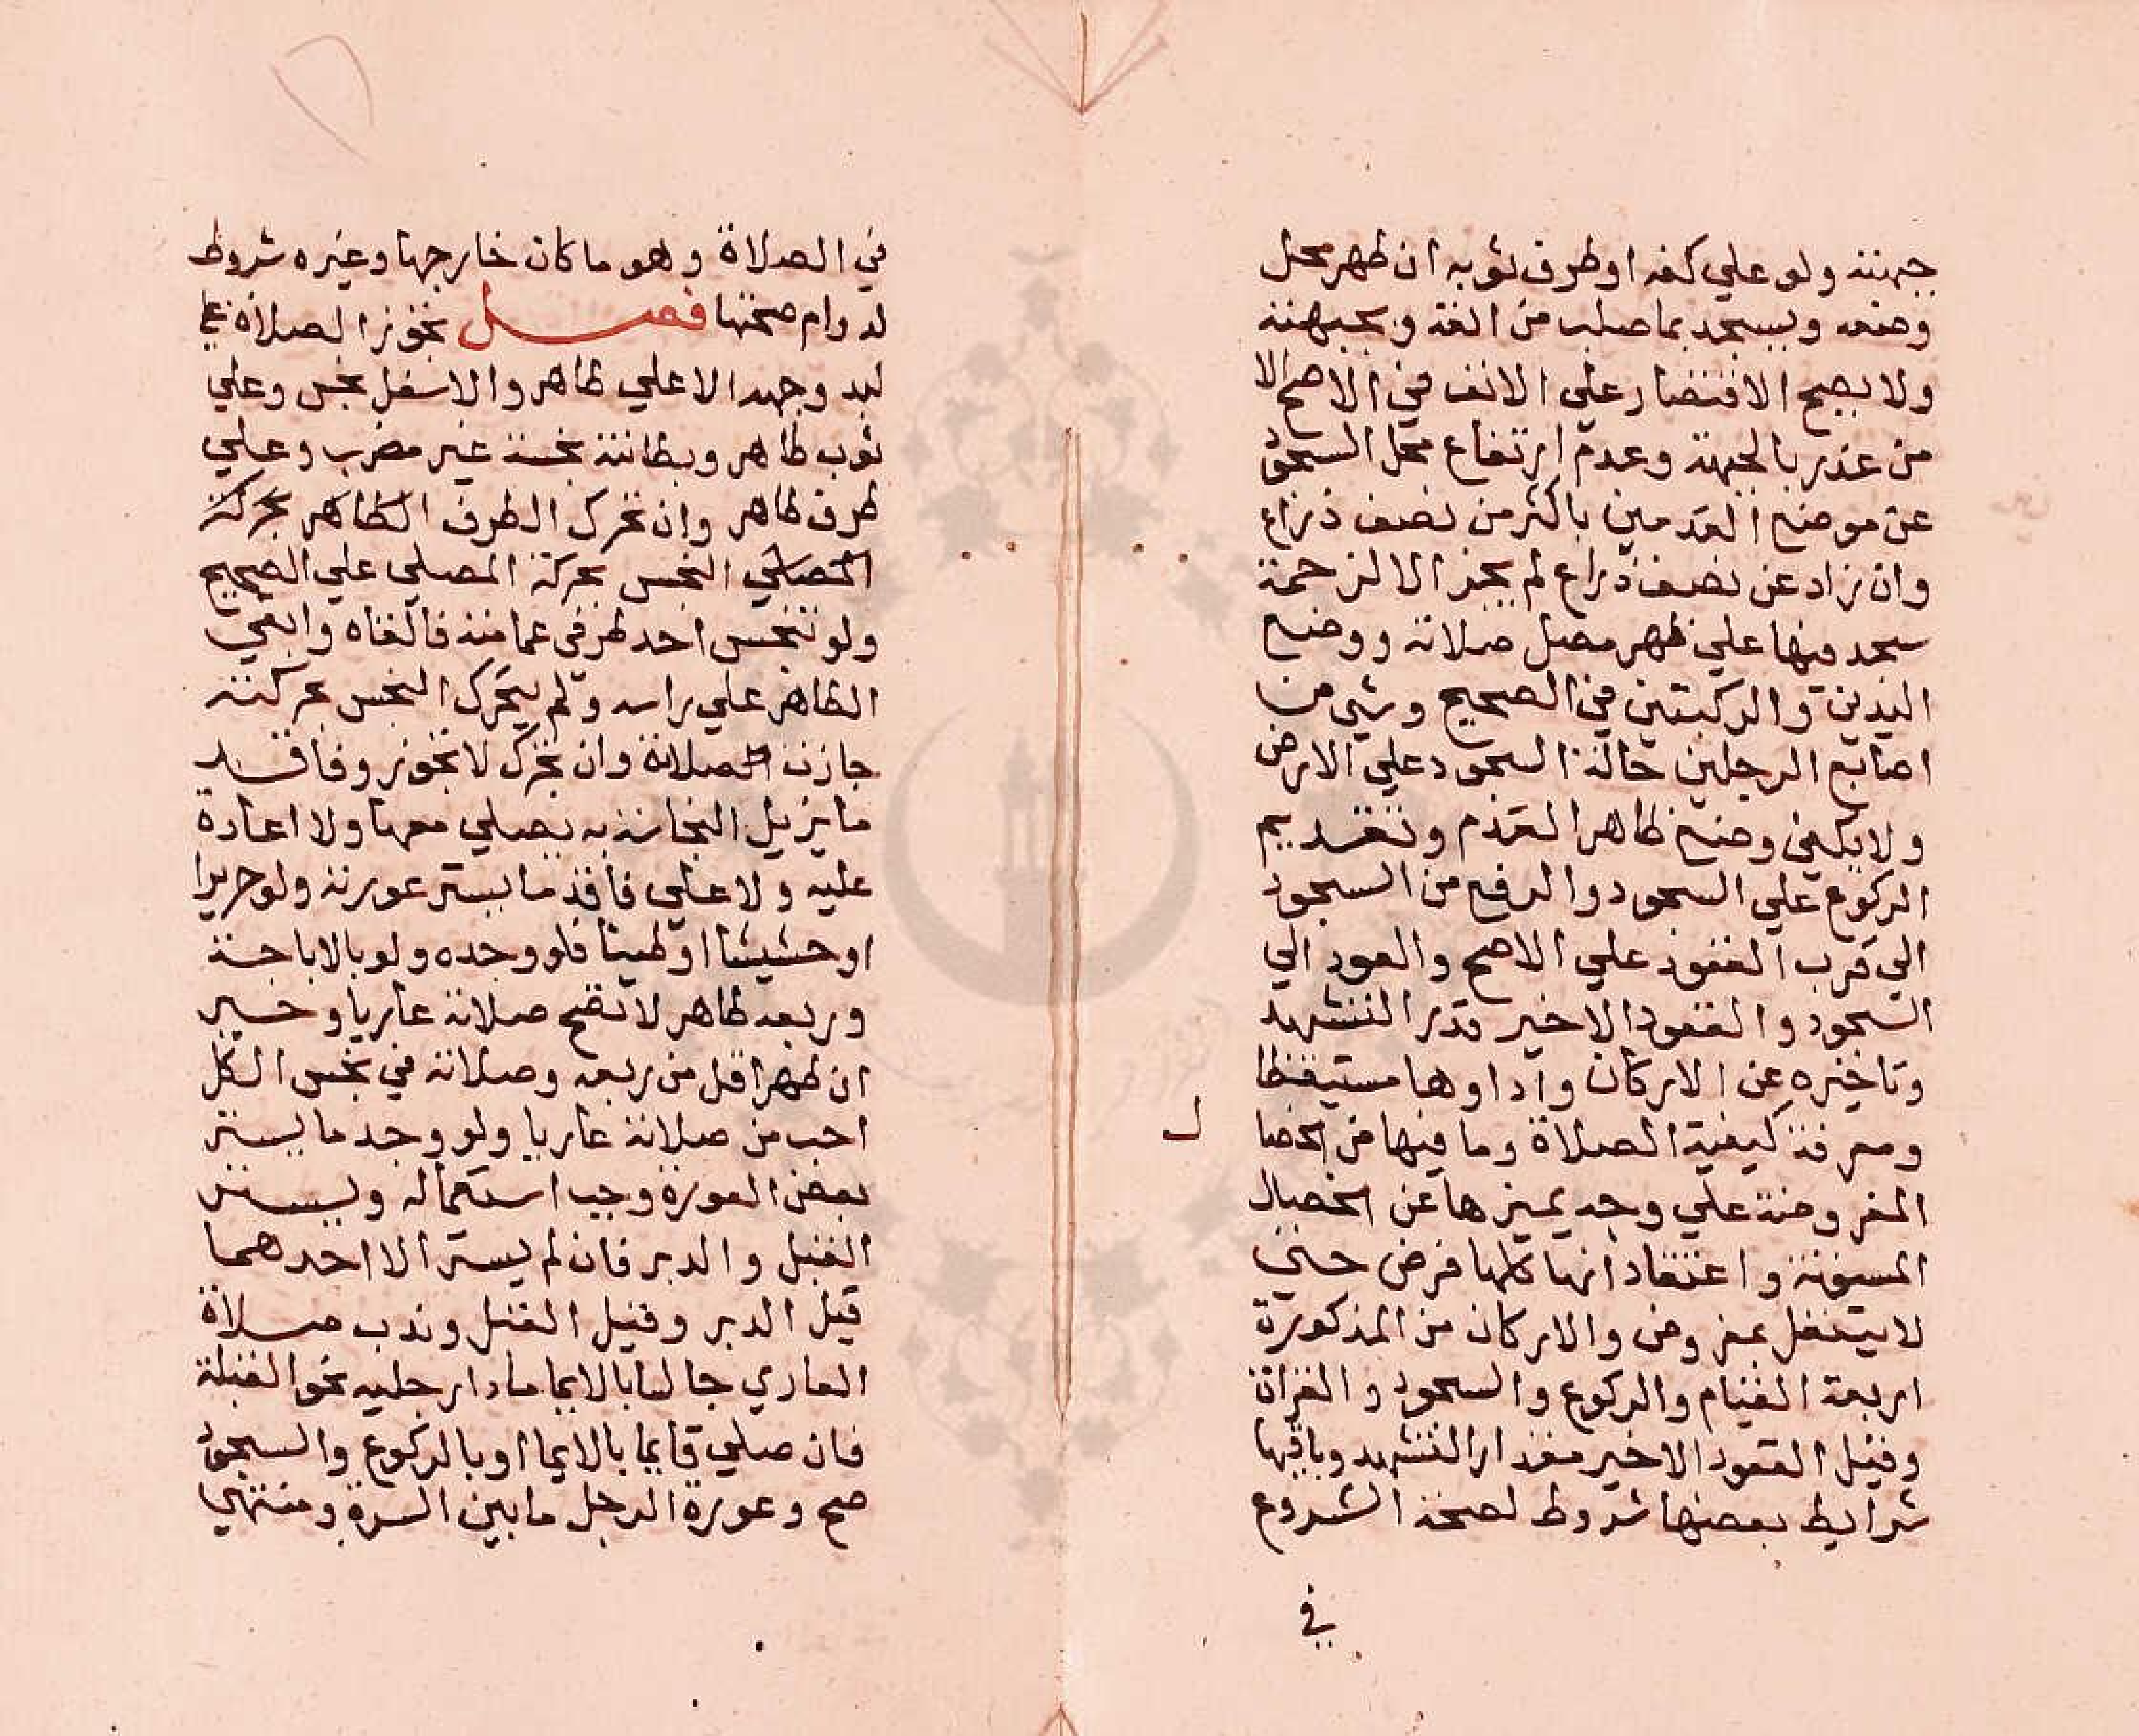 جبهته ولو علي كفه او طرف ثوبه ان طهر محل
وضعه ويسجد بما صلب من انفه وبجبهته
ولا يصح الاقتصار علي الانف في الاصح الا
من عذر بالجبهة وعدم ارتفاع محل السجود
عن موضع القدمين باكثر من نصف ذراع
وان زاد عن نصف ذراع لم يجز الا لزحمة
سجد فيها علي ظهر مصل صلاته ووضع
اليدين والركبتين في الصحيح وشي من
اصابع الرجلين حالة السجود علي الارض
ولا يكفي وضع ظاهر القدم وتقديم
الركوع علي السجود والرفع من السجود
الي قرب القعود علي الاصح والعود الي
السجود والقعود الاخير قدر التشهد
وتاخيره عن الاركان واداوها مستيقظا
ومعرفة كيفية الصلاة وما فيها من الخصا
ل
المفروضة علي وجه يميزها عن الخصال
المسنونة واعتقاد انها كلها فرض حتي
لا يتنفل بمفروض والاركان من المذكورة
اربعة القيام والركوع والسجود والقراة
وقيل القعود الاخير مقدار التشهد وباقيها
شرايط بعضها شروط لصحة الشروع
في
في الصلاة وهو ما كان خارجها وغيره شروط
لدوام صحتها فصل تجوز الصلاة علي
لبد وجهه الاعلي طاهر والاسفل نجس وعلي
ثوب طاهر وبطانته نجسة غير مضرب وعلي
طرف طاهر وان تحرك الطرف الطاهر بحركة
المصلي النجس بحركة المصلي علي الصحيح
ولو تنجس احد طرفي عمامته فالقاه وابقي
الطاهر علي راسه ولم يتحرك النجس بحركته
جازت الصلاته وان تحرك لا تجوز وفاقد
ما يزيل النجاسة به يصلي معها ولا اعادة
عليه ولا علي فاقد ما يستر عورته ولو حريرا
او حشيشا او طينا فلو وجده ولو بالاباحة
وربعه طاهر لا تصح صلاته عاريا وخير
ان طهر اقل من ربعه وصلاته في نجس الكل
احب من صلاته عاريا ولو وجد ما يستر
بعض العورة وجب استعماله ويستر
القبل والدبر فان لم يستر الا احدهما
قيل الدبر وقيل القبل وندب صلاة
العاري جالسا بالايما مادا رجليه نحو القبلة
فان صلي قايما بالايما او بالركوع والسجود
صح وعورة الرجل ما بين السرة ومنتهي